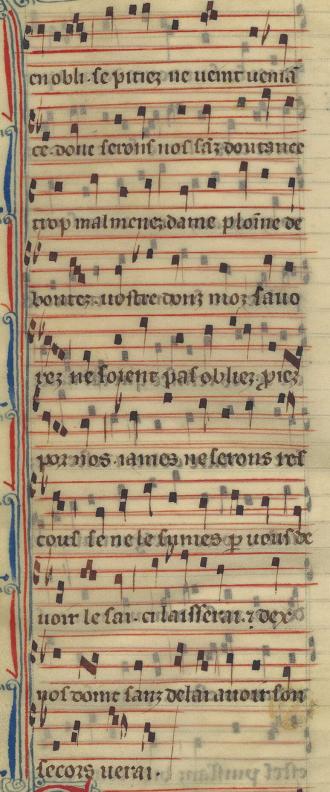 en obli. se pitiez ne veint venia
ce. dont serons nos sāz doutance
trop malmenez. dame ploine de
bontez. vostre douz moz savo
rez ne soient pas obliez. p̱iez
por nos. iames ne serons res
cous se ne le sumes p̱ vous de
voir le sai. ci laisserai. ⁊ dex
vos doint sanz delai avoir son
secors verai.